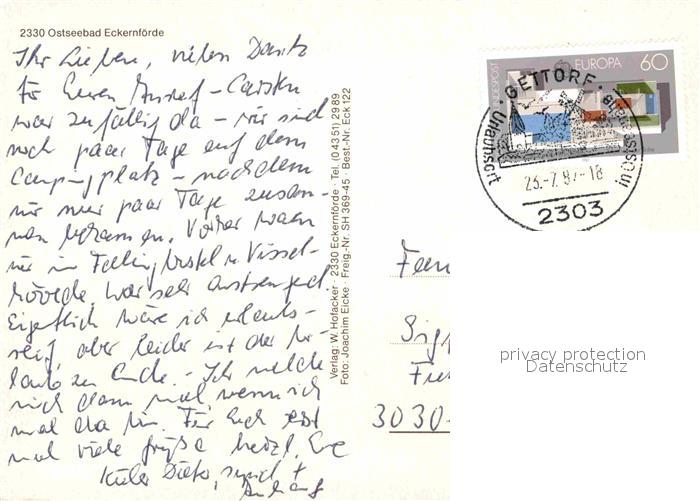 2330 Ostseebad Eckernförde
Ihr Lieben, vielen Dank
für Euren Anruf - Carsten
war zufällig da - wir sind
noch paar Tage auf dem
Campingplatz - nachdem
wir nur paar Tage zusam-
men bekamen. Vorher waren
wir in Fallingbostel u. Vissel-
hövede, war sehr anstrengend.
Eigentlich wäre ich urlaubs-
reif, aber leider ist der Ur-
laub zu Ende. - Ich melde
mich dann mal wenn ich
mal da bin. Für Euch erst
mal viele Grüße herzl. Eure
Dieter,
Verlag: W. Hofacker · 2330 Eckernförde · Tel. (0 43 51) 29 89
Foto: Joachim Eicke · Freig.-Nr. SH 369-45 · Best.-Nr. Eck 122
BUNDESPOST
EUROPA 60
GETTORF
Urlaubsort
23.-7.87-18
2303
Fam
Sig
3030
privacy protection
Datenschutz